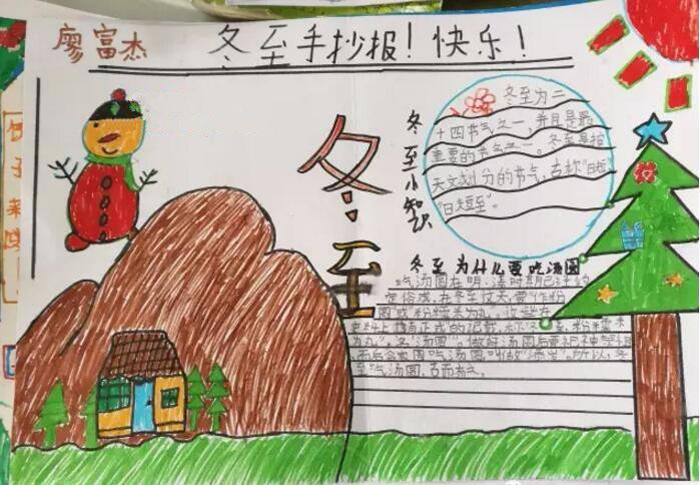 廖富杰
冬至手抄报！快乐！
冬至
冬至小知识
冬至为二
十四节气之一，并且是最
重要的节气之一。冬至是按
天文划分的节气，古称"日短"
"日短至"。
冬至为什么要吃汤圆
吃汤圆在明、清时期已
俗成，在冬至这天，要作粉
圆或粉糯米为丸，这
史料上有正式的记载，称，粉糯米
为丸"，冬"汤圆"。做好汤圆后要祀神祭祖
而后合家围吃汤圆叫做"添岁"。所以，冬
至吃汤圆，古而有之。